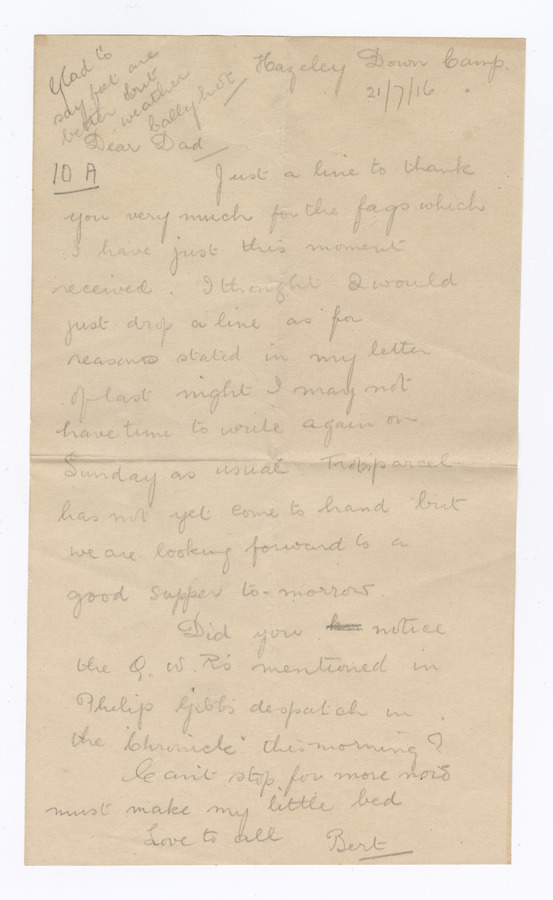 Hazeley Down Camp.
21/7/16
Glad to
say feet are
better but
weather
bally hot
Dear Dad
10 A
Just a line to thank
you very much for the fags which
I have just this moment
received. I thought I would
just drop a line as for
reasons stated in my letter
of last night I may not
have time to write again on
Sunday as usual. parcel
has not yet come to hand but
we are looking forward to a
good supper to-morrow.
Did you notice
the Q. W. R's mentioned in
Philip Gibbs despatch in
the "Chronicle" this morning?
Can't stop for more now
must make my little bed
Love to all Bert